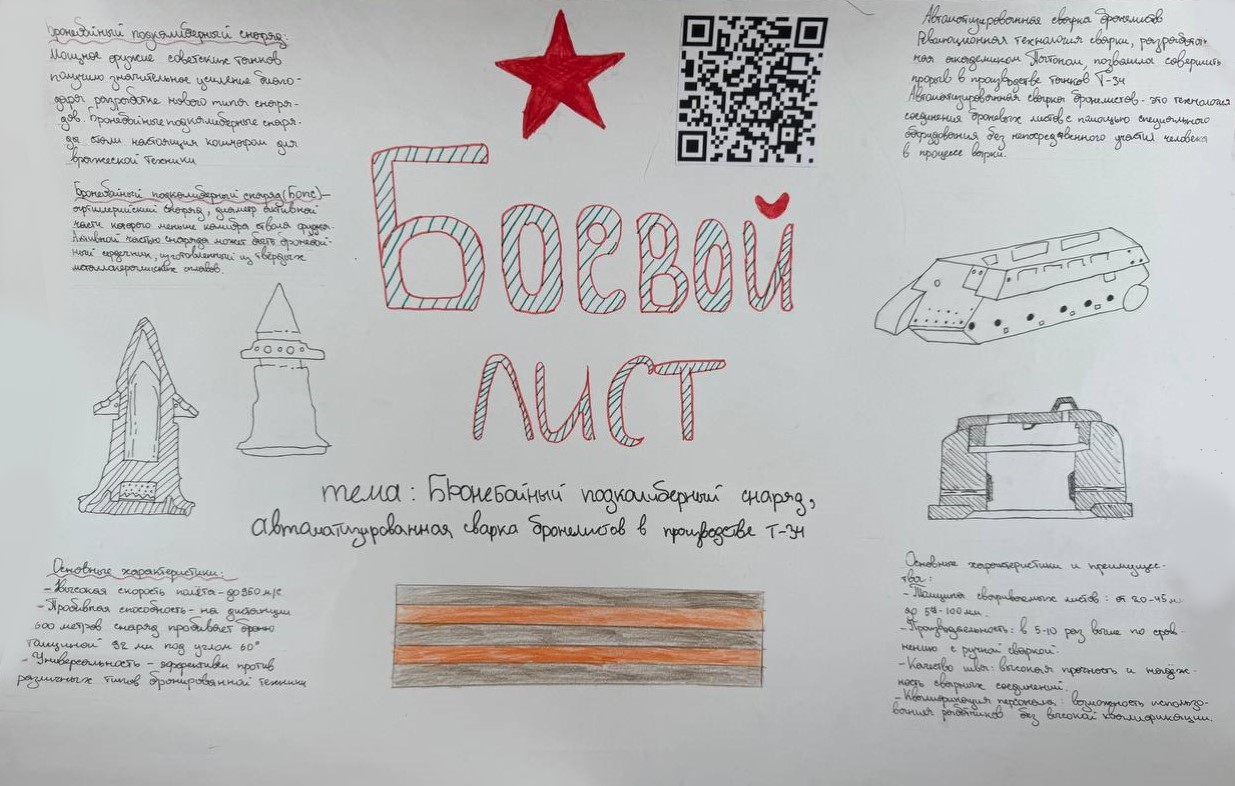 Бронебойный подкалиберный снаряд:
Мощное оружие советских танков
получило значительное усиление благо-
даря разработке нового типа снаря-
дов. Бронебойные подкалиберные снаря-
ды стали настоящим кошмаром для
вражеской техники
Бронебойный подкалиберный снаряд (БОПС) -
артиллерийский снаряд, диаметр активной
части которого меньше калибра ствола орудия.
Активной частью снаряда может быть бронебой-
ный сердечник, изготовленный из твёрдых
металлокерамических сплавов.
Основные характеристики:
- Высокая скорость полёта - до 950 м/с
- Пробивная способность - на дистанции
500 метров снаряд пробивает броню
толщиной 92 мм под углом 60°
- Универсальность - эффективен против
различных типов бронированной техники
Боевой
лист
тема: Бронебойный подкалиберный снаряд,
автоматизированная сварка бронелистов в производстве Т-34
Автоматизированная сварка бронелистов
Революционная технология сварки, разработан-
ная академиком Патоном, позволила совершить
прорыв в производстве танков Т-34
Автоматизированная сварка бронелистов - это технология
соединения броневых листов с помощью специального
оборудования без непосредственного участия человека
в процессе варки.
Основные характеристики и преимущес-
тва:
- Толщина свариваемых листов: от 20-45 м
до 100 мм.
- Производительность: в 5-10 раз выше по срав-
нению с ручной сваркой.
- Качество шва: высокая прочность и надёж-
ность сварных соединений.
- Квалификация персонала: возможность использо-
вания работников без высокой квалификации.